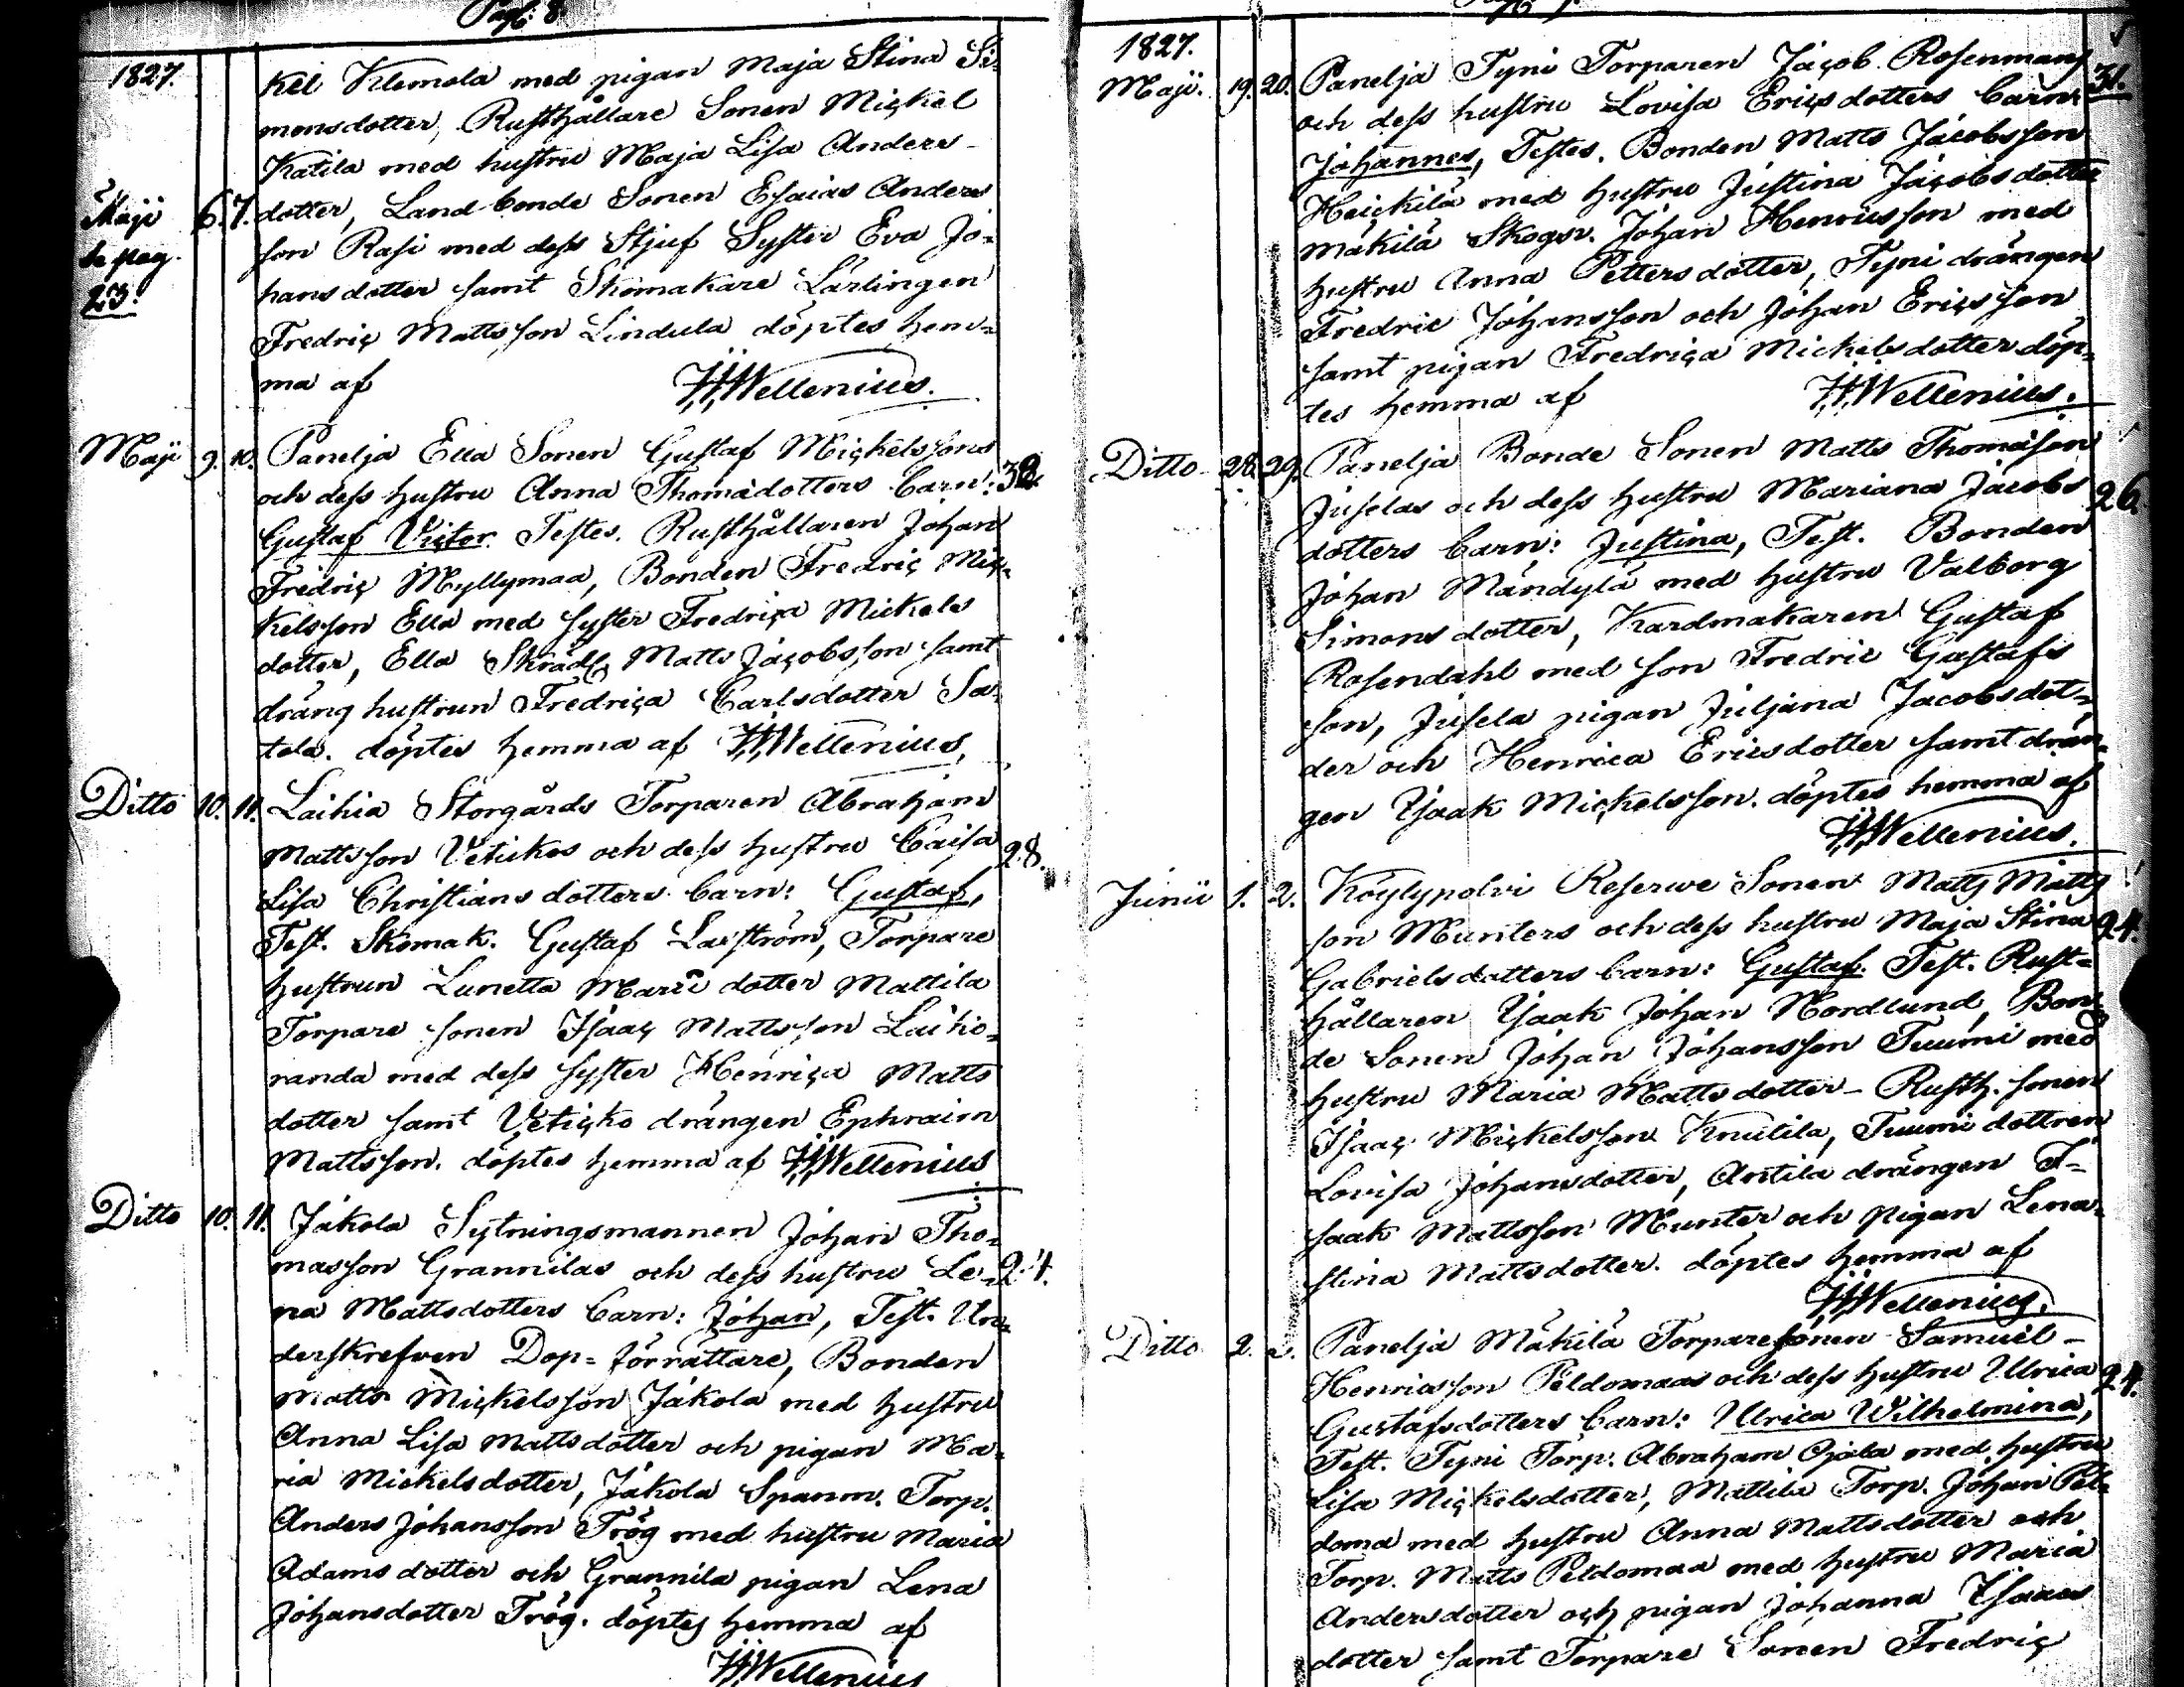 Pag: 8
1827.
kel Klemola med pigan Maja Stina Si-
monsdotter, Rusthållare Sonen Mickel
Katila med hustru Maja Lisa Anders-
Maji 6. 7. dotter, Landbonde Sonen Esaias Anders
se pag. son Rasi med dess Stjuf Syster Eva Jo-
23. hansdotter samt Skomakare Lärlingen
Fredric Mattsson Lindula döptes hem-
ma af HWellenius.
Maji 9. 10. Panelja Ella Sonen Gustaf Mickelssons
och dess hustru Anna Thomädotters Barn:
Gustaf Victor. Testes. Rusthållaren Johan
Fredric Myllymaa, Bonden Fredric Mic-
kelsson Ella med syster Fredrica Mickels
dotter, Ella Skrädd. Matts Jacobsson samt
dräng hustrun Fredrica Carlsdotter Sa-
tola. döptes hemma af HWellenius.
Ditto 10. 11. Laihia Storgårds Torparen Abraham
Mattsson Vetickos och dess hustru Caisa 28.
Lisa Christiansdotters Barn: Gustaf,
Test. Skomak. Gustaf Laxström, Torpare
hustrun Lunetta Marie dotter Mattila
Torpare sonen Isaac Mattsson Laiho-
randa med dess syster Henrica Matts
dotter samt Veticko drängen Ephraim
Mattsson. döptes hemma af HWellenius
Ditto 10. 11. Jakola Sytningsmannen Johan Tho-
masson Grannilas och dess hustru Le- 24.
na Mattsdotters Barn: Johan, Test. Un-
derskrefven Dop-förrättare, Bonden
Matts Mickelsson Jakola med hustru
Anna Lisa Mattsdotter och pigan Ma-
ria Mickelsdotter, Jakola Spanm. Torp.
Anders Johansson Trög med hustru Maria
Adamsdotter och Grannila pigan Lena
Johansdotter Trög. döptes hemma af
HWellenius
1827.
Maji. 19. 20. Panelja Tyni Torparen Jacob Rosenmans 31.
och dess hustru Lovisa Ericsdotters Barn
Johannes, Testes. Bonden Matts Jacobsson
Heickilä med hustru Justina Jacobsdotter
Mäkilä Skogsv. Johan Henricsson med
hustru Anna Pettersdotter, Tyni drängen
Fredric Johansson och Johan Ericsson
samt pigan Fredrica Mickelsdotter döp-
tes hemma af HWellenius.
Ditto 28. 29. Panelja Bonde Sonen Matts Thomäson
Juselas och dess hustru Mariana Jacobs 26.
dotters Barn: Justina, Test. Bonden
Johan Mändylä med hustru Valborg
Simonsdotter, Kardmakaren Gustaf
Rosendahl med son Fredric Gustafs
son, Jusela pigan Juljana Jacobsdot-
der och Henrica Ericsdotter samt drän-
gen Isaak Mickelsson. döptes hemma af
HWellenius.
Junii 1. 2. Köylypolvi Reserwe Sonen Matts Matts
son Munters och dess hustru Maja Stina 24.
Gabrielsdotters Barn: Gustaf. Test. Rust-
hållaren Isaak Johan Nordlund, Bon-
de Sonen Johan Johansson Tuumi med
hustru Maria Mattsdotter - Rusth. sonen
Isaac Mickelsson Knutila, Tuumi dottren
Lovisa Johansdotter, Antila drängen I-
saak Mattsson Munter och pigan Lena
stina Mattsdotter. döptes hemma af
HWellenius.
Ditto 2. Panelja Mäkilä Torparesonen Samuel
Henricsson Peldomaas och dess hustru Ulrica 24.
Gustafsdotters Barn: Ulrica Wilhelmina,
Test. Tyni Torp. Abraham Ojala med hustru
Lisa Mickelsdotter, Mattila Torp. Johan Pel-
doma med hustru Anna Mattsdotter och
Torp. Matts Peldomaa med hustru Maria
Andersdotter och pigan Johanna Isaacs
dotter samt Torpare Sonen Fredric